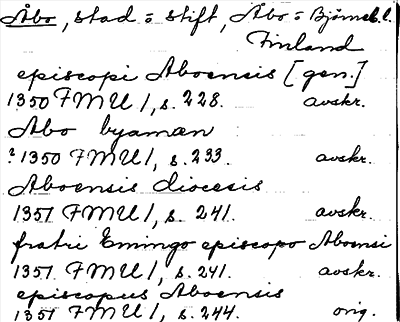 Åbo, stad o stift, Åbo o Björneb. l.
Finland
episcopi Aboensis [gen.]
1350 FMU 1, s. 228. avskr.
Abo byaman
? 1350 FMU 1, s. 233. avskr.
Aboensis diocesis
1351 FMU 1, s. 241. avskr.
fratri Emingo episcopo Aboensi
1351 FMU 1, s. 241. avskr.
episcopus Aboensis
1351 FMU 1, s. 244. orig.